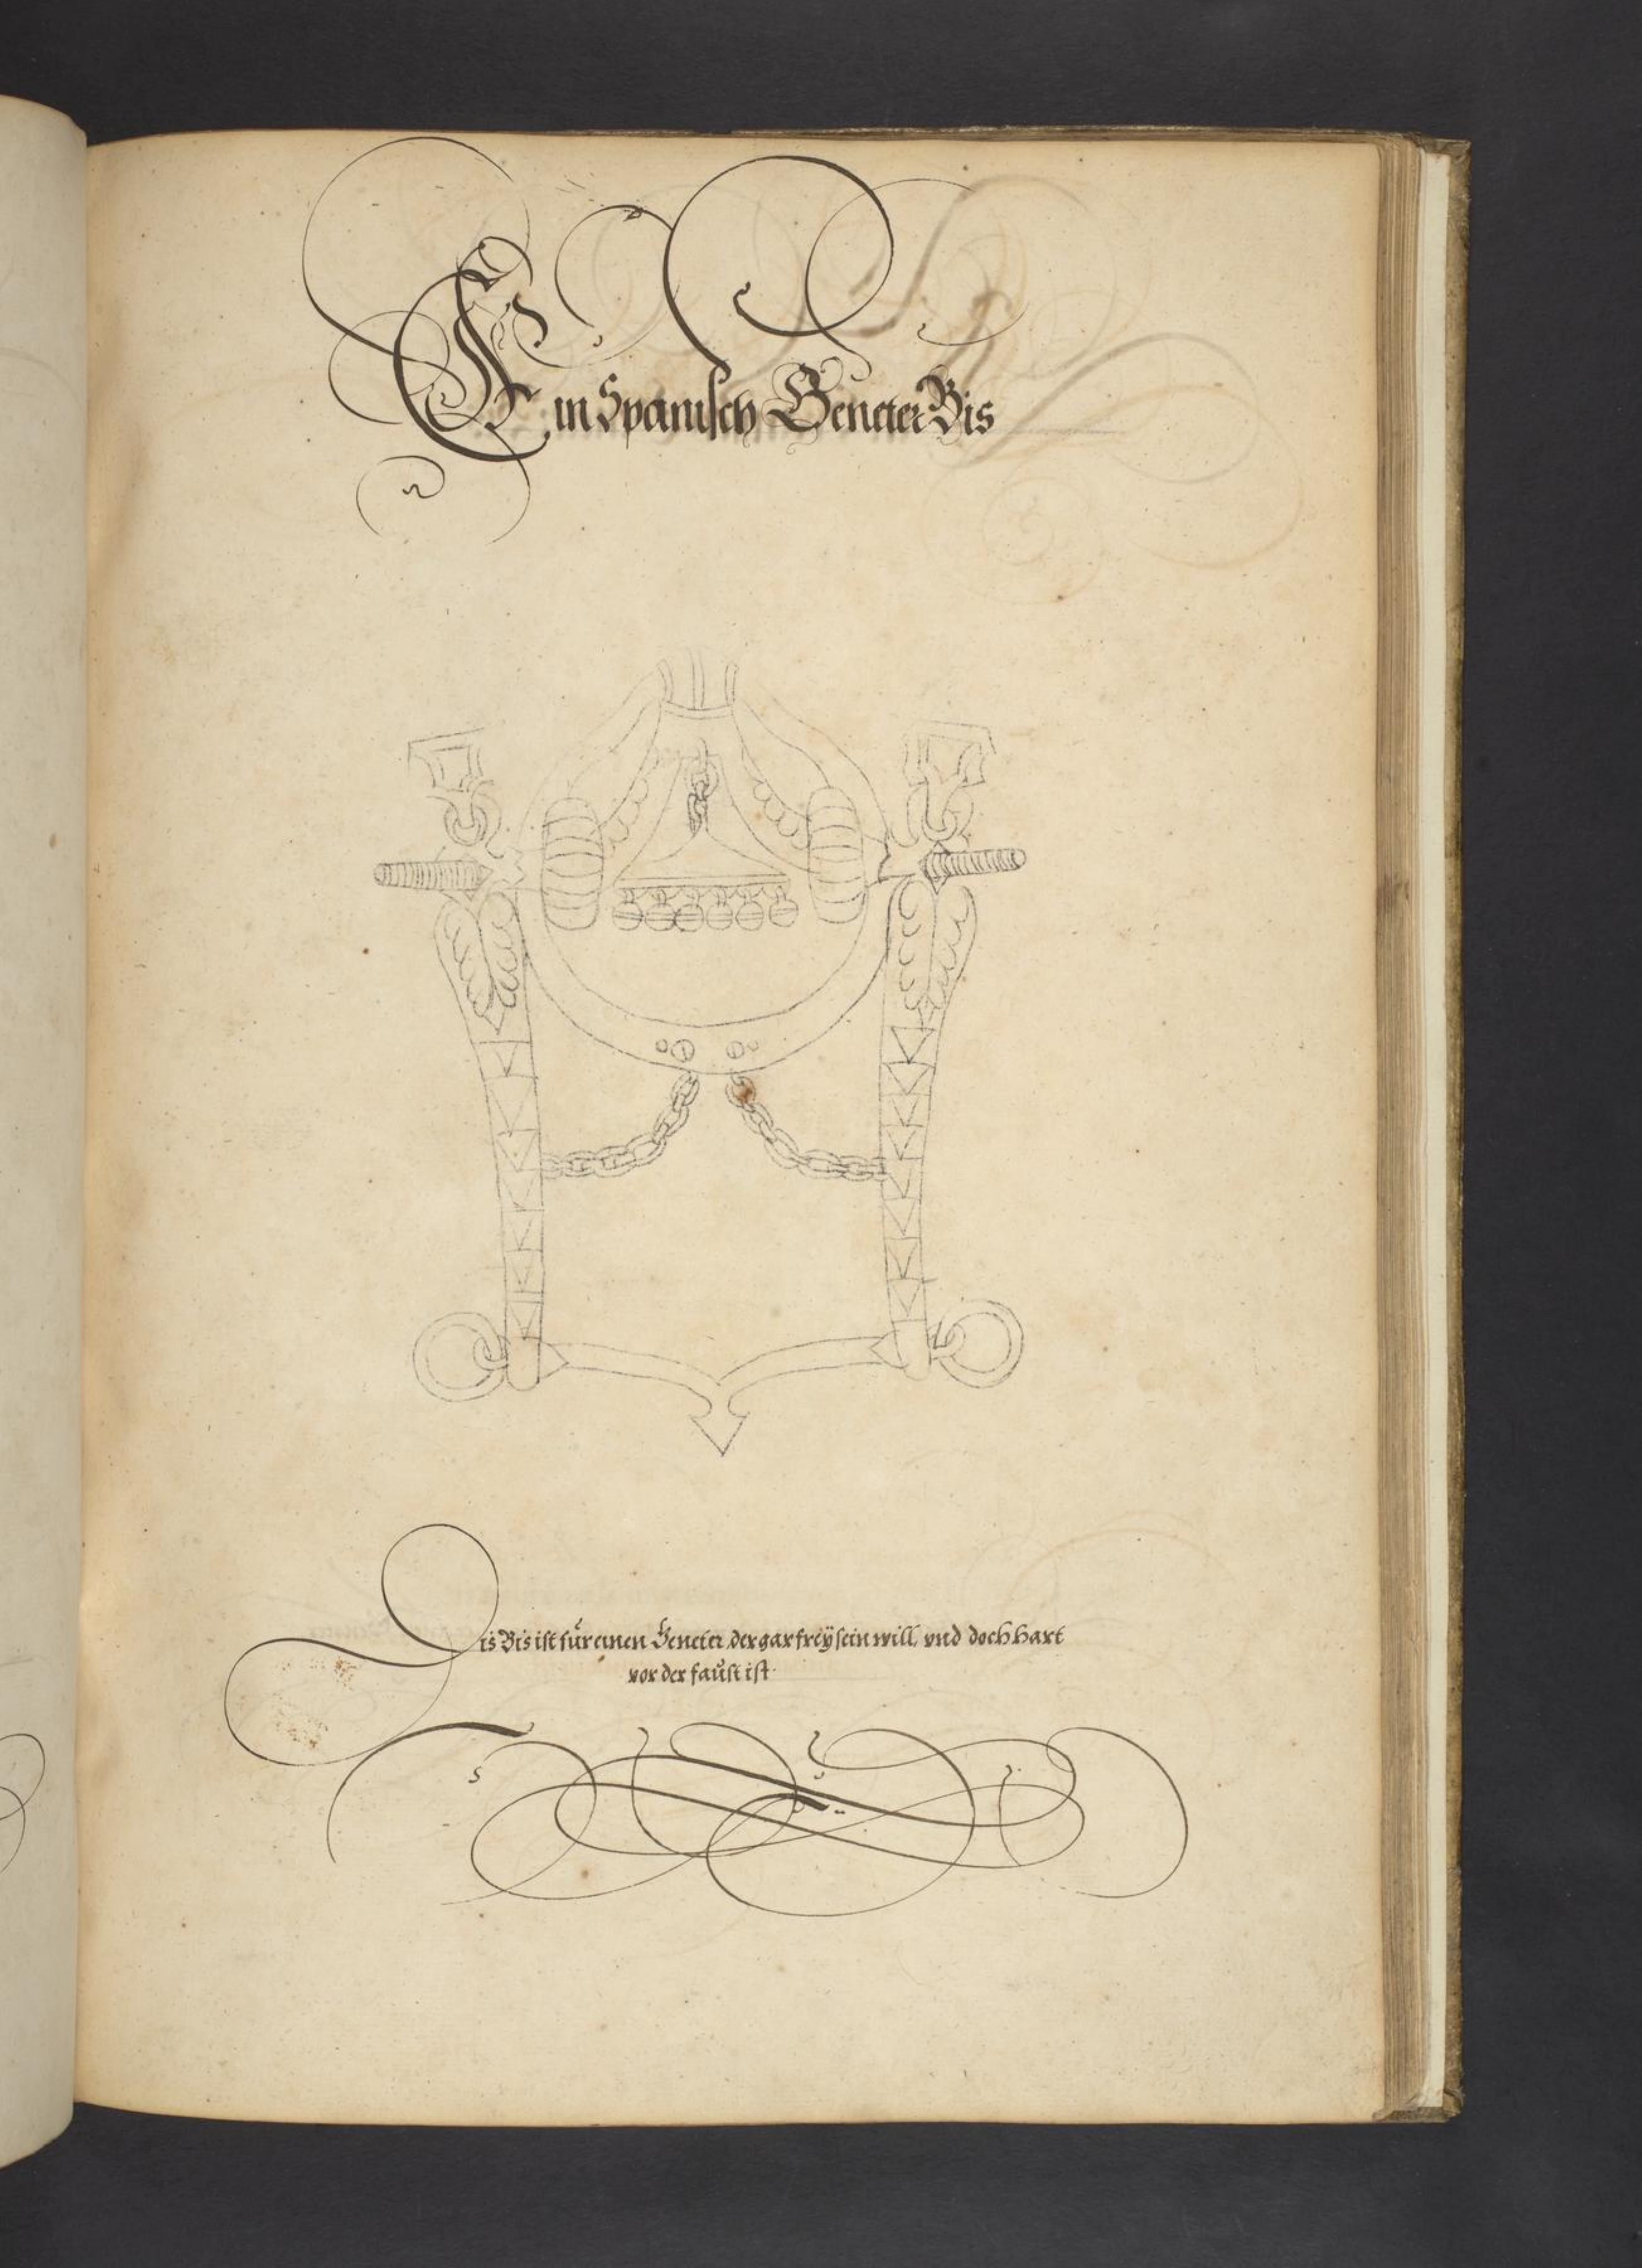 Ein Spanisch Geneter Bis
Dis Bis ist für einen Geneter, der gar freÿ sein will, vnd doch hart
vor der faŭst ist.